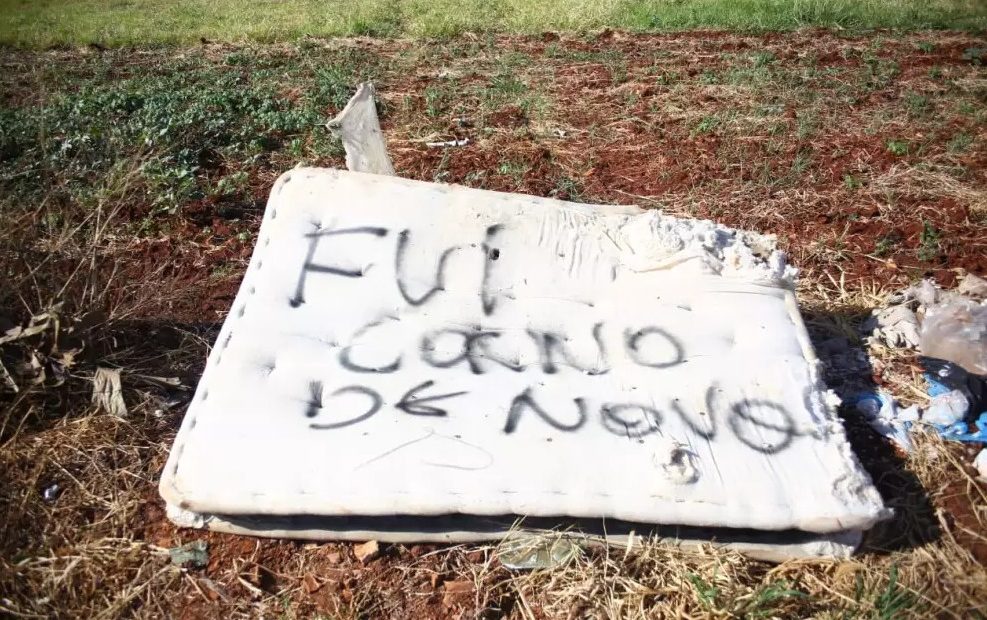 FUI
CORNO
DE NOVO